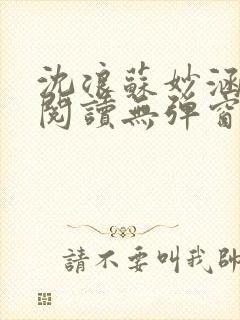 沈浪蘇妙涵
閱讀無彈窗
請不要叫我帥